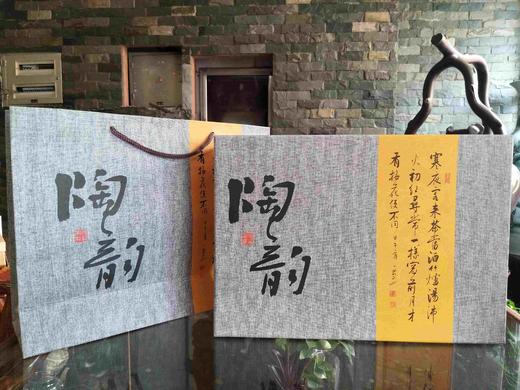 陶韵
有梅花便不同
陶韵
寒夜客来茶當酒竹爐湯沸
火初红尋常一樣窗前月才
有梅花便不同